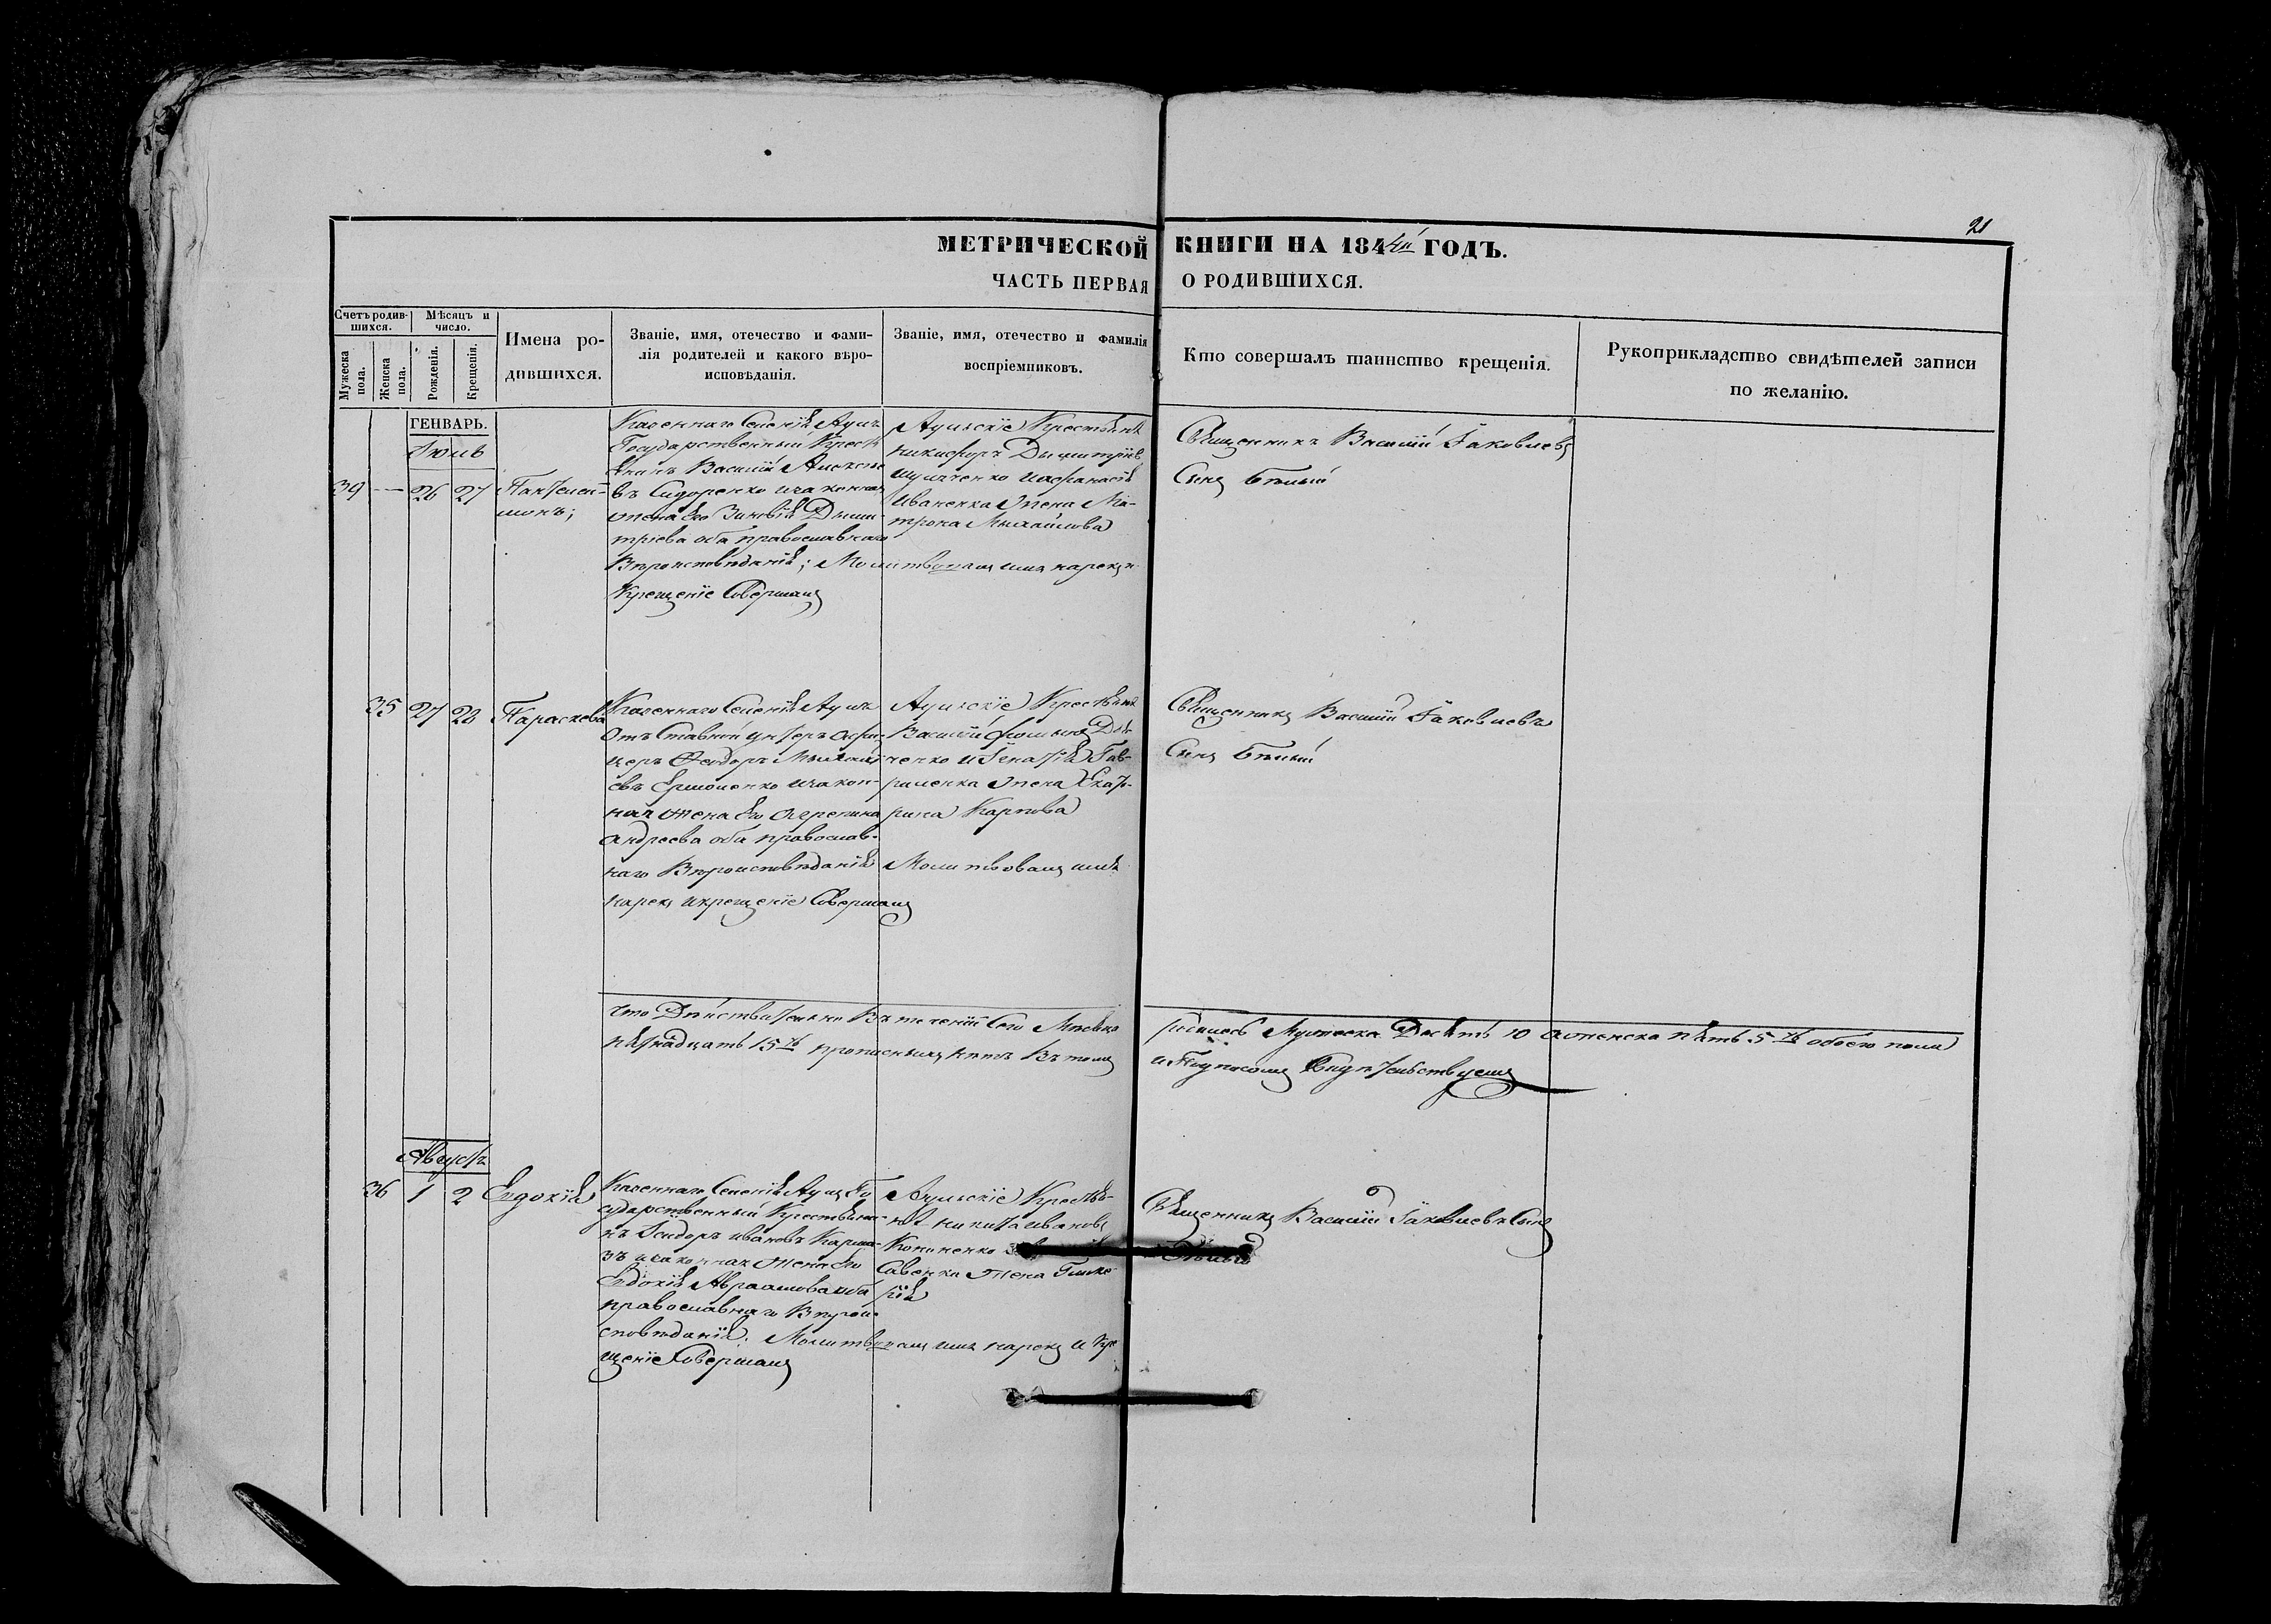 21
МЕТРИЧЕСКОЙ КНИГИ НА 184 ГОДЪ.
ЧАСТЬ ПЕРВАЯ О РОДИВШИХСЯ.
Счетъ родив-
шихся.
Мѣсяцъ и
число.
Мужеска
пола.
Женска
пола.
Рожденія.
Крещенія.
Имена ро-
дившихся.
Званіе, имя, отечество и фами-
лія родителей и какого вѣро-
исповѣданія.
Званіе, имя, отечество и фамилія
воспріемниковъ.
Кто совершалъ таинство крещенія.
Рукоприкладство свидѣтелей записи
по желанію.
ГЕНВАРЬ.
Июль
39 — 26 27
Пантелей-
монъ;
Казеннаго Селенія Ауль
Государственный Крест
янинъ Василій Алексѣе
въ Сидоренко изаконная
жена Его Зиновія Дыми-
тріева оба православнаго
Вѣроисповѣданія; Молитвовалъ имя нарекъ и
Крещеніе Совершалъ
Аульскіе Крестяне
Никифоръ Дымитріев
иафанасія
Иваненка жена Ма-
трона Михайлова
Священникъ Василій Іаковлевъ
Сынъ Бѣлый
35 27 28 Параскева
Казеннаго Селенія Ауль
Отъ Ставной унтеръ офи
церъ Феодоръ Михайл
евъ Ермоленко изакон-
ная жена Его Агрепина
Андреева оба православ-
наго Вѣроисповѣданія Молитвовалъ имя
нарекъ икрещеніе Совершалъ
Аульскіе Крестяне
Василій Фоминъ Дя
ченко и Игнатія Гав-
риленка жена Екате-
рина Карпова
Священникъ Василій Іаковлевъ
Сынъ Бѣлый
Что Дѣйствительно Въ теченіи Сего Мѣсяца родилось Мужеска Десять 10 аженска пять 5-ть обоего пола
пятнадцать 15ть прописныхъ нѣтъ Въ томъ и Подписомъ Свидѣтельствуемъ
Августъ
36 1 2 Евдокія
Казеннаго Селенія Аулъ Го
сударственный Крестяни-
нъ Ісидоръ Ивановъ
изаконная жена Его
Евдокія Авраамова оба
православнаго Вѣрои
сповѣданія. Молитвовалъ имя нарекъ и Кре
щеніе Совершалъ
Аульскіе Крестя-
не Никита Ивановъ
Кононенко
Савенка жена Глике-
рія
Священникъ Василій Іаковлевъ Сынъ
Бѣлый